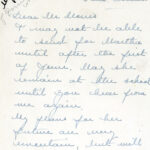 Dear Mr. Morris
I may not be able
to send for Martha
until after the first
of June. May she
remain at the school
until you hear from
me again.
My plans for her
future are very
uncertain, but will